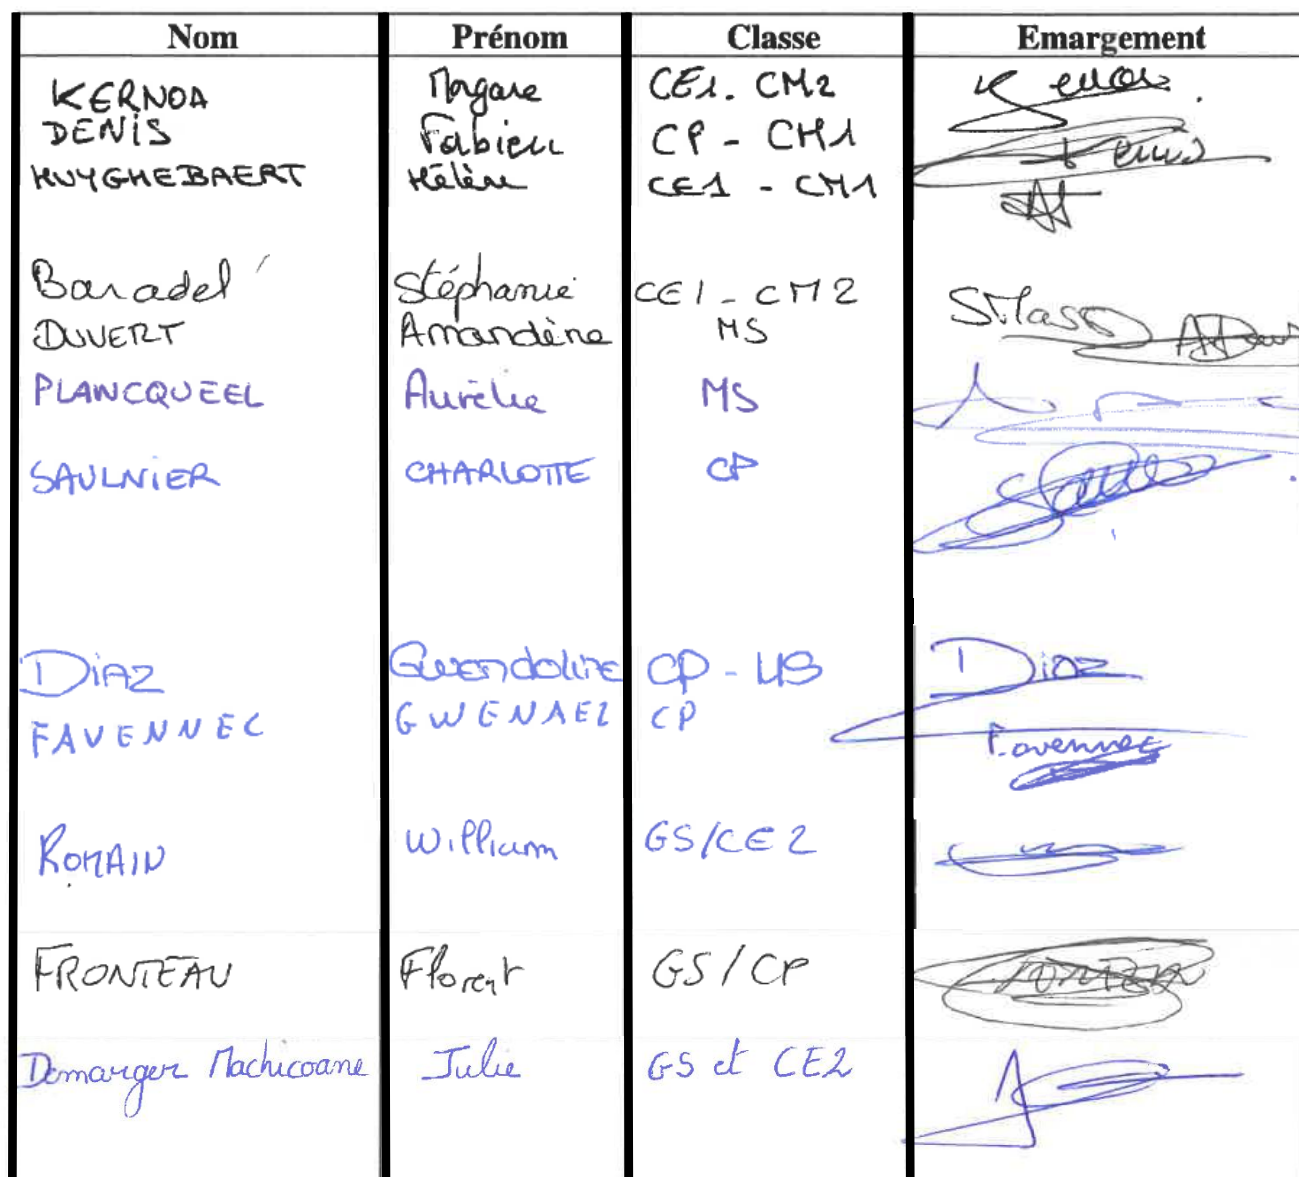 Nom Prénom Classe Emargement
KERNOA Morgane CE1. CM2
DENIS Fabien CP - CM1
HUYGHEBAERT Hélène CE1 - CM1
Baradel Stéphanie CE1 - CM2
DUVERT Amandine MS
PLANCQUEEL Aurélie MS
SAULNIER CHARLOTTE CP
DiAZ Gwendoline CP - Diaz
FAVENNEC GWENAEL CP Favennec
ROMAIN William GS/CE2
FRONTEAU Florent GS/CP
Demarger Machicoane Julie GS et CE2